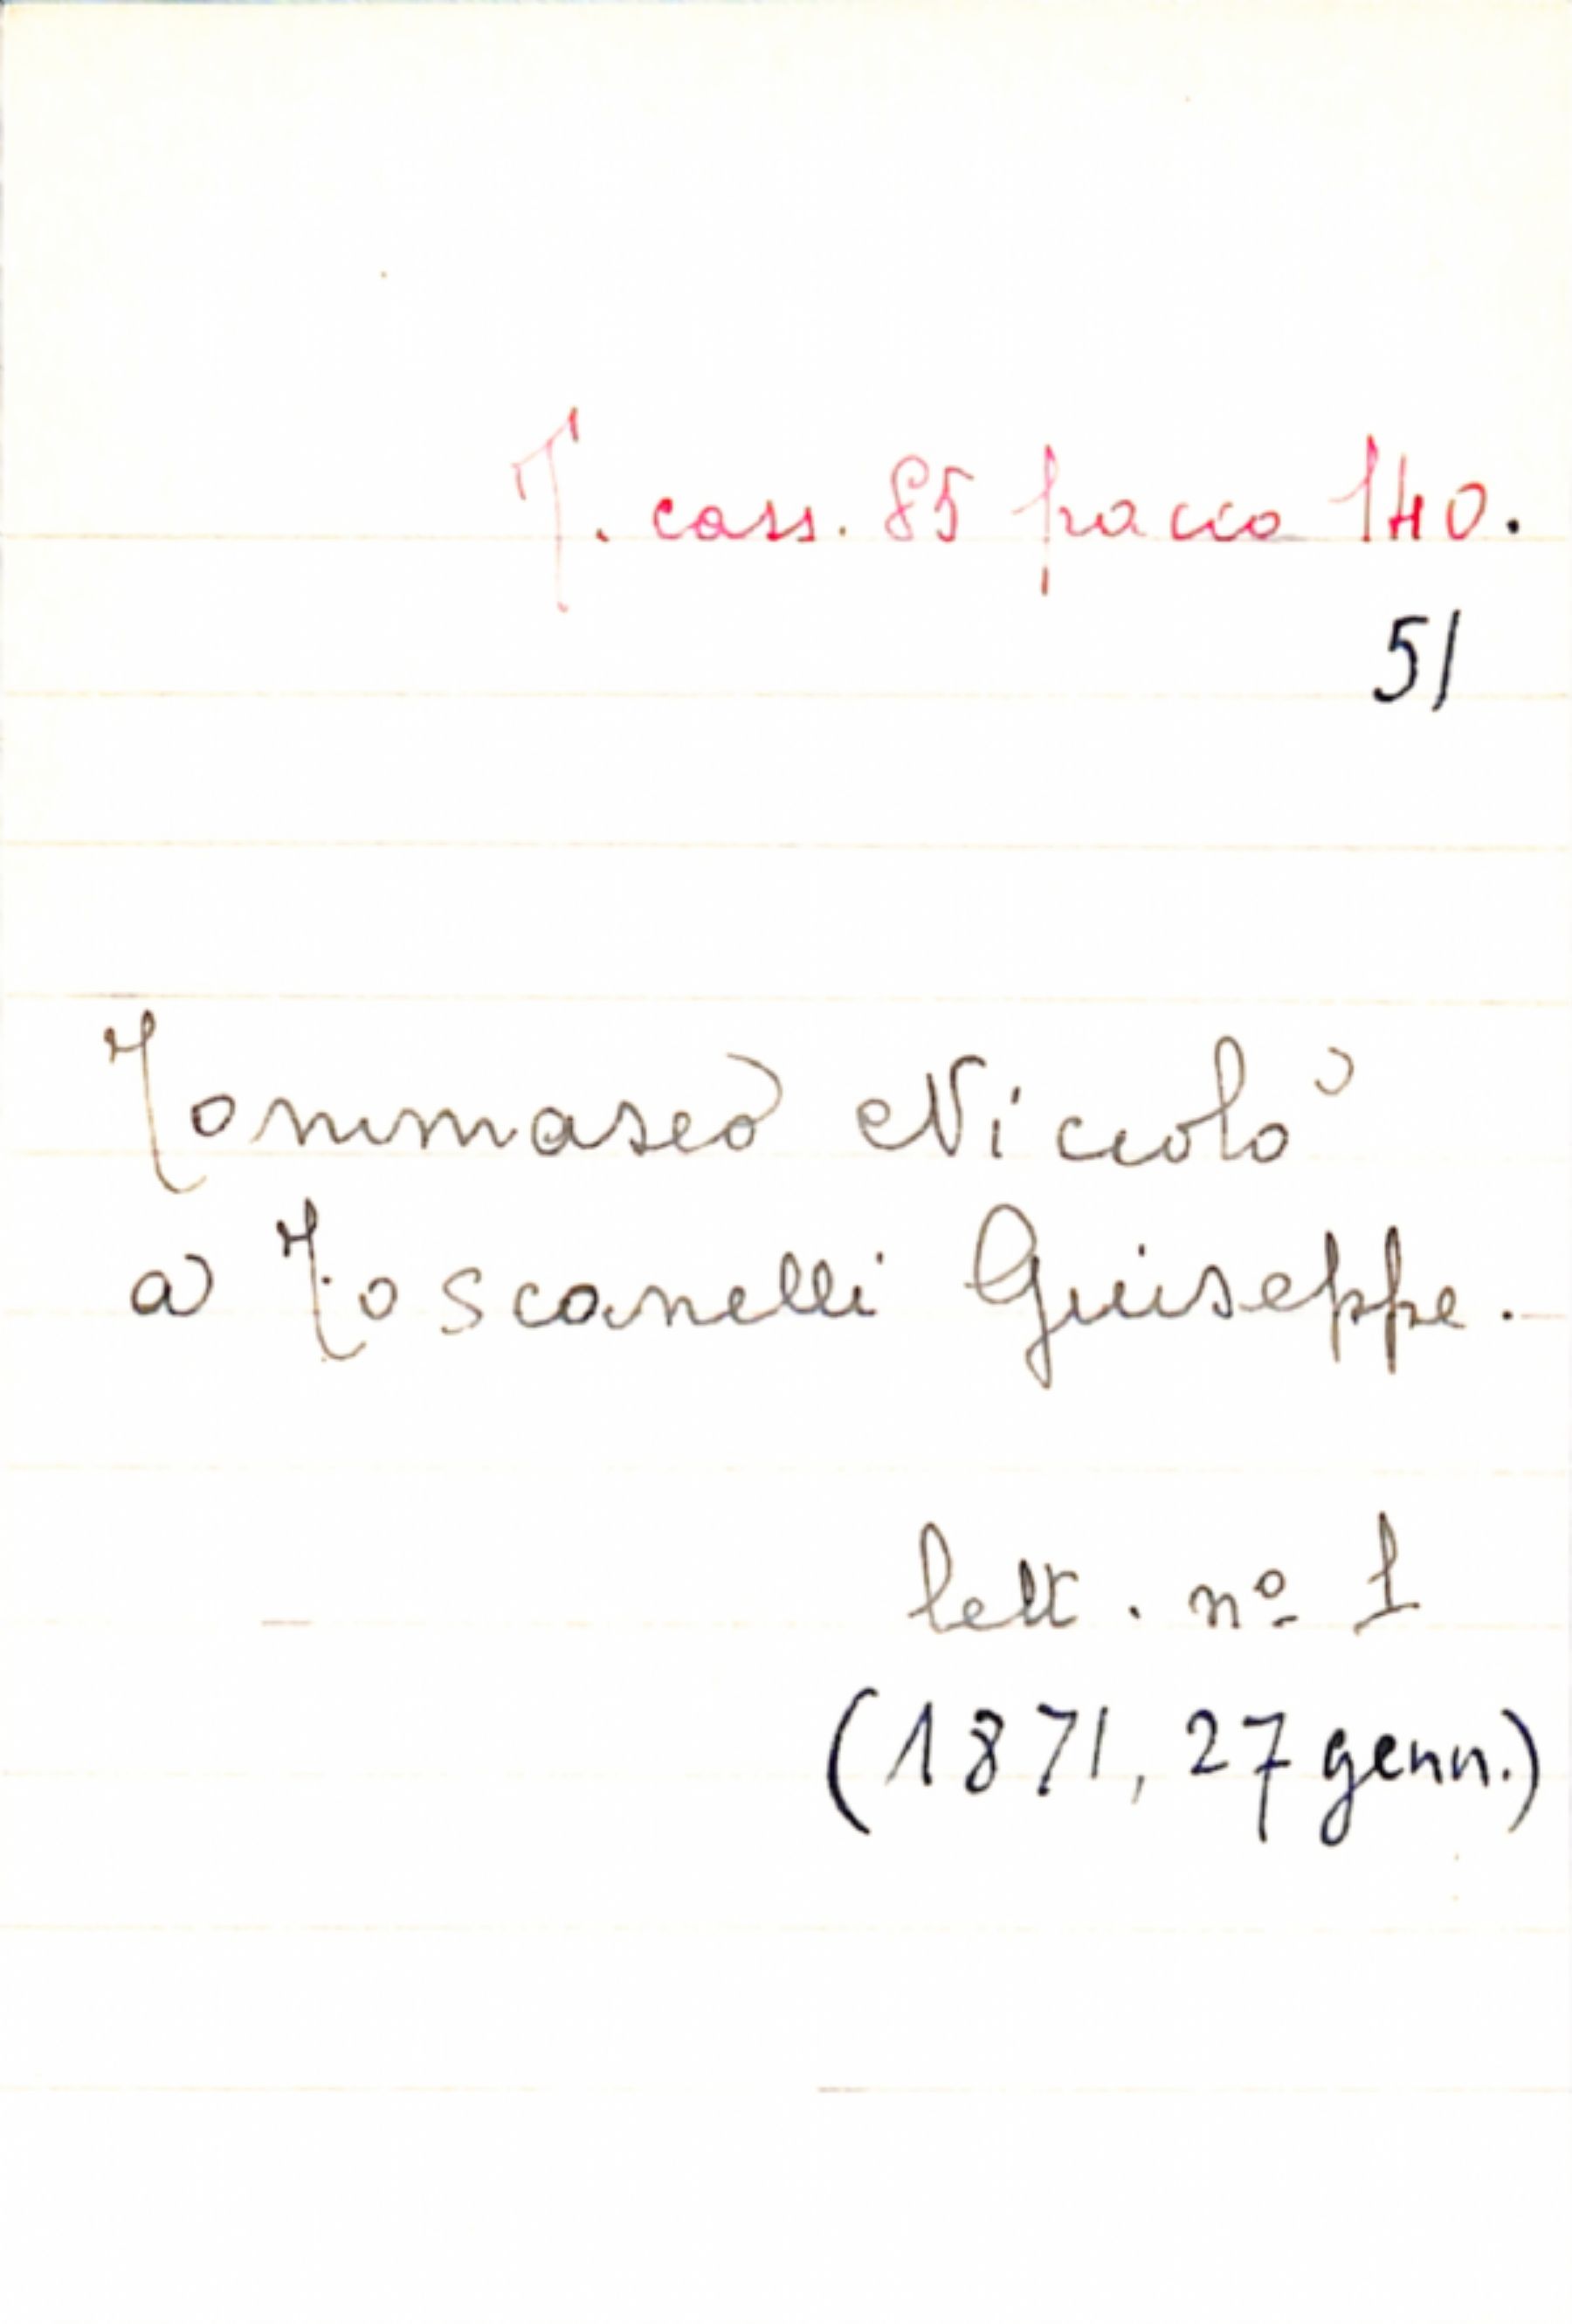 T. cass. 85 pacco 140.
51
Tommaseo Niccolò
a Toscanelli Giuseppe.
lett. nº 1
(1871, 27 genn.)